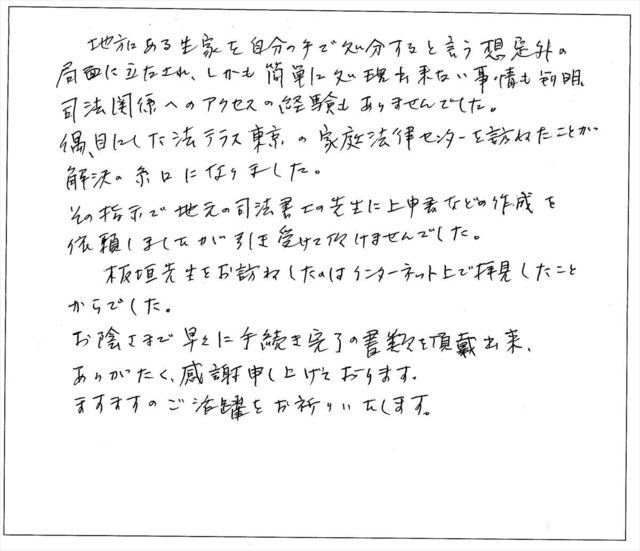 地方にある生家を自分の手で処分すると言う想定外の
局面に立たされ、しかも簡単に処理出来ない事情も判明、
司法関係へのアクセスの経験もありませんでした。
偶、目にした法テラス東京の家庭法律センターを訪ねたことが
解決の糸口になりました。
その指示で地元の司法書士の先生に上申書などの作成を
依頼しましたが引き受けて頂けませんでした。
板垣先生をお訪ねしたのはインターネット上で拝見したこと
からでした。
お陰さまで早々に手続き完了の書類を頂戴出来、
ありがたく、感謝申し上げております。
ますますのご活躍をお祈りいたします。